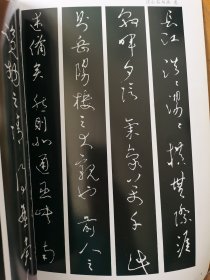 長江浩浩湯湯橫無際涯
朝暉夕陰氣象萬千此
則岳陽樓之大觀也前人之
述備矣然則北通巫峽南